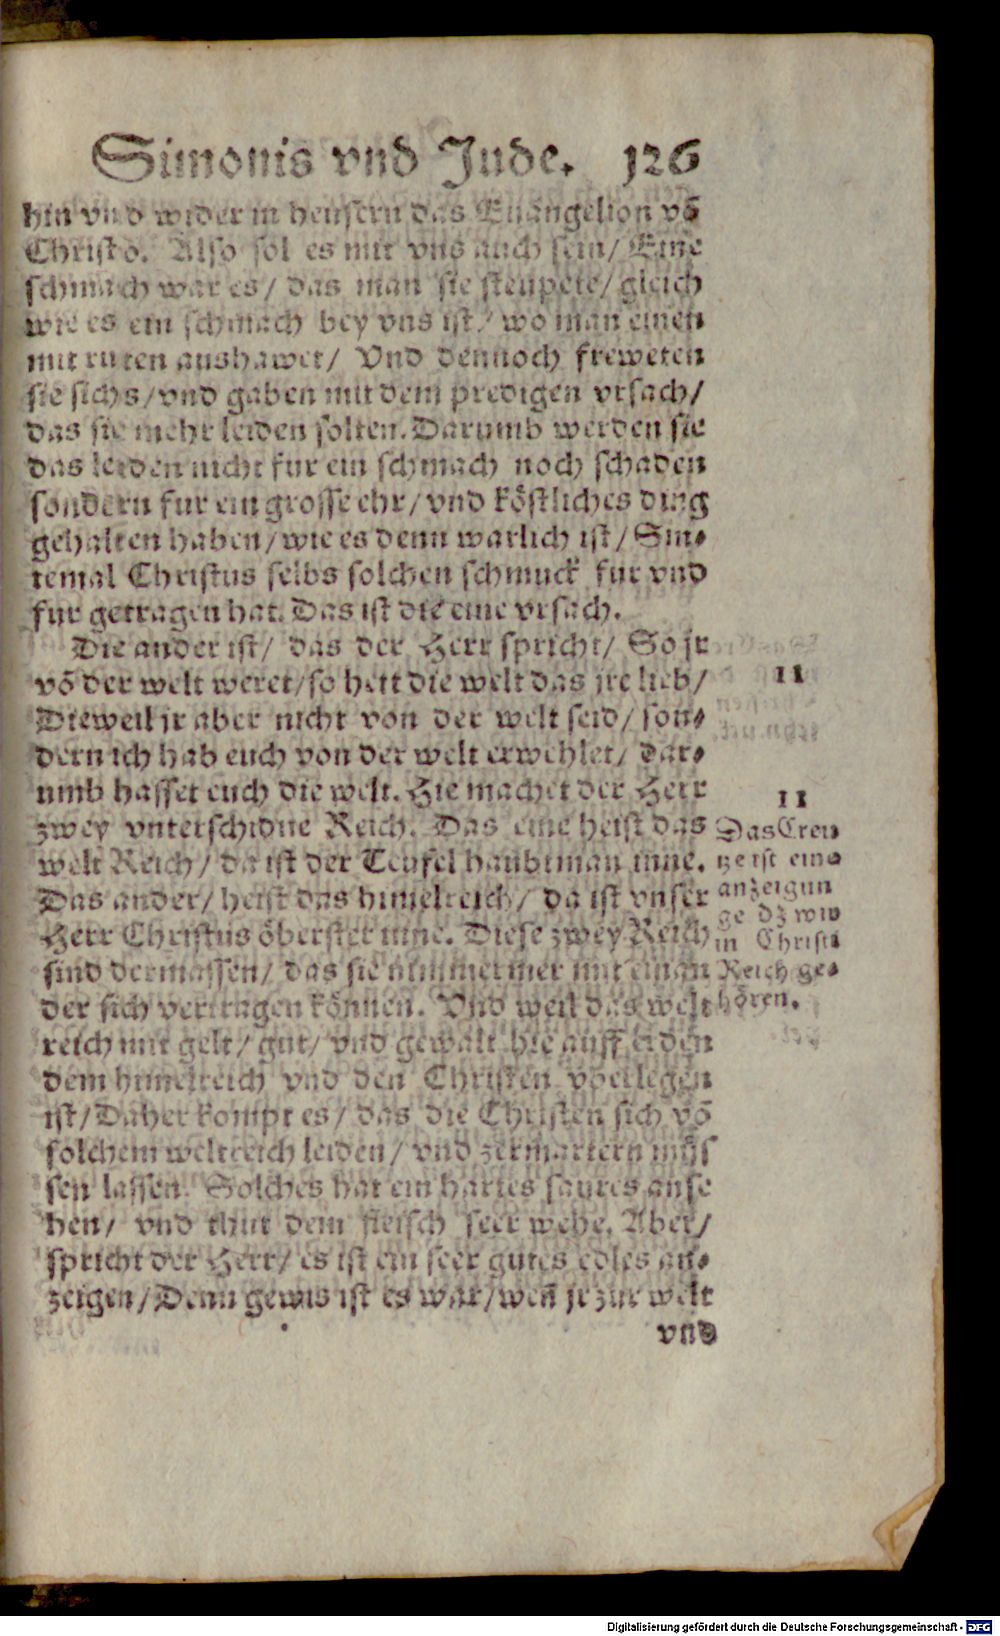 Simonis vnd Jude. 126
hin vnd wider in heusern das Euangelion vō
Christo. Also sol es mit vns auch sein/ Eine
schmach war es/ das man sie steupete/ gleich
wie es ein schmach bey vns ist/ wo man einen
mit ruten aushawet/ Vnd dennoch freweten
sie sichs/vnd gaben mit dem predigen vrsach/
das sie mehr leiden solten. Darumb werden sie
das leiden nicht fur ein schmach noch schaden
sondern fur ein grosse ehr/vnd köstliches ding
gehalten haben/wie es denn warlich ist/ Sin⸗
temal Christus selbs solchen schmuck fur vnd
fur getragen hat. Das ist die eine vrsach.
Die ander ist/ das der Herr spricht/ So jr
vō der welt weret/so hett die welt das jre lieb/
Dieweil jr aber nicht von der welt seid/ son⸗
dern ich hab euch von der welt erwehlet/ dar⸗
umb hasset euch die welt. Hie machet der Herr
zwey vnterschidne Reich. Das eine heist das
welt Reich/ da ist der Teufel haubtman inne.
Das ander/ heist das himelreich/ da ist vnser
Herr Christus öberster inne. Diese zwey Reich
sind dermassen/ das sie nimmermer mit einan
der sich vertragen können. Vnd weil das welt
reich mit gelt/ gut/ vnd gewalt hie auff erden
dem himelreich vnd den Christen vberlegen
ist/Daher kompt es/ das die Christen sich vō
solchem weltreich leiden/ vnd zermartern müs
sen lassen. Solches hat ein hartes saures anse
hen/ vnd thut dem fleisch seer wehe. Aber/
spricht der Herr/ es ist ein seer gutes edles an⸗
zeigen/Denn gewis ist es war/weñ jr zur welt
vnd
II
II
Das Creu
tze ist eine
anzeigun
ge dz wir
in Christi
Reich ge⸗
hören.
Digitalisierung gefördert durch die Deutsche Forschungsgemeinschaft - DFG